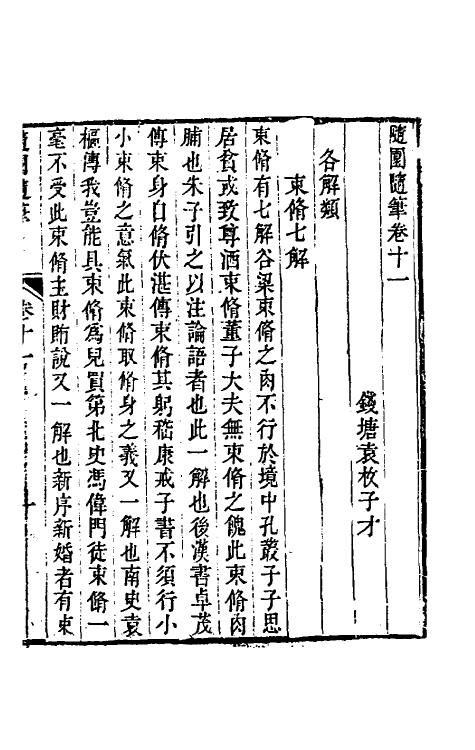 隨園隨筆卷十一
錢塘袁枚子才
各解類
束脩七解
束脩有七解谷梁束脩之肉不行於境中孔叢子子思
居貧或致尊酒束脩董子大夫無束脩之餽此束脩肉
脯也朱子引之以注論語者也此一解也後漢書卓茂
傳束身自脩伏湛傳束脩其躬嵇康戒子書不須行小
小束脩之意氣此束脩取脩身之義又一解也南史袁
樞傳我豈能具束脩為兒買第北史馮偉門徒束脩一
毫不受此束脩主財賄說又一解也新序新婚者有束
隨園隨筆 卷十一